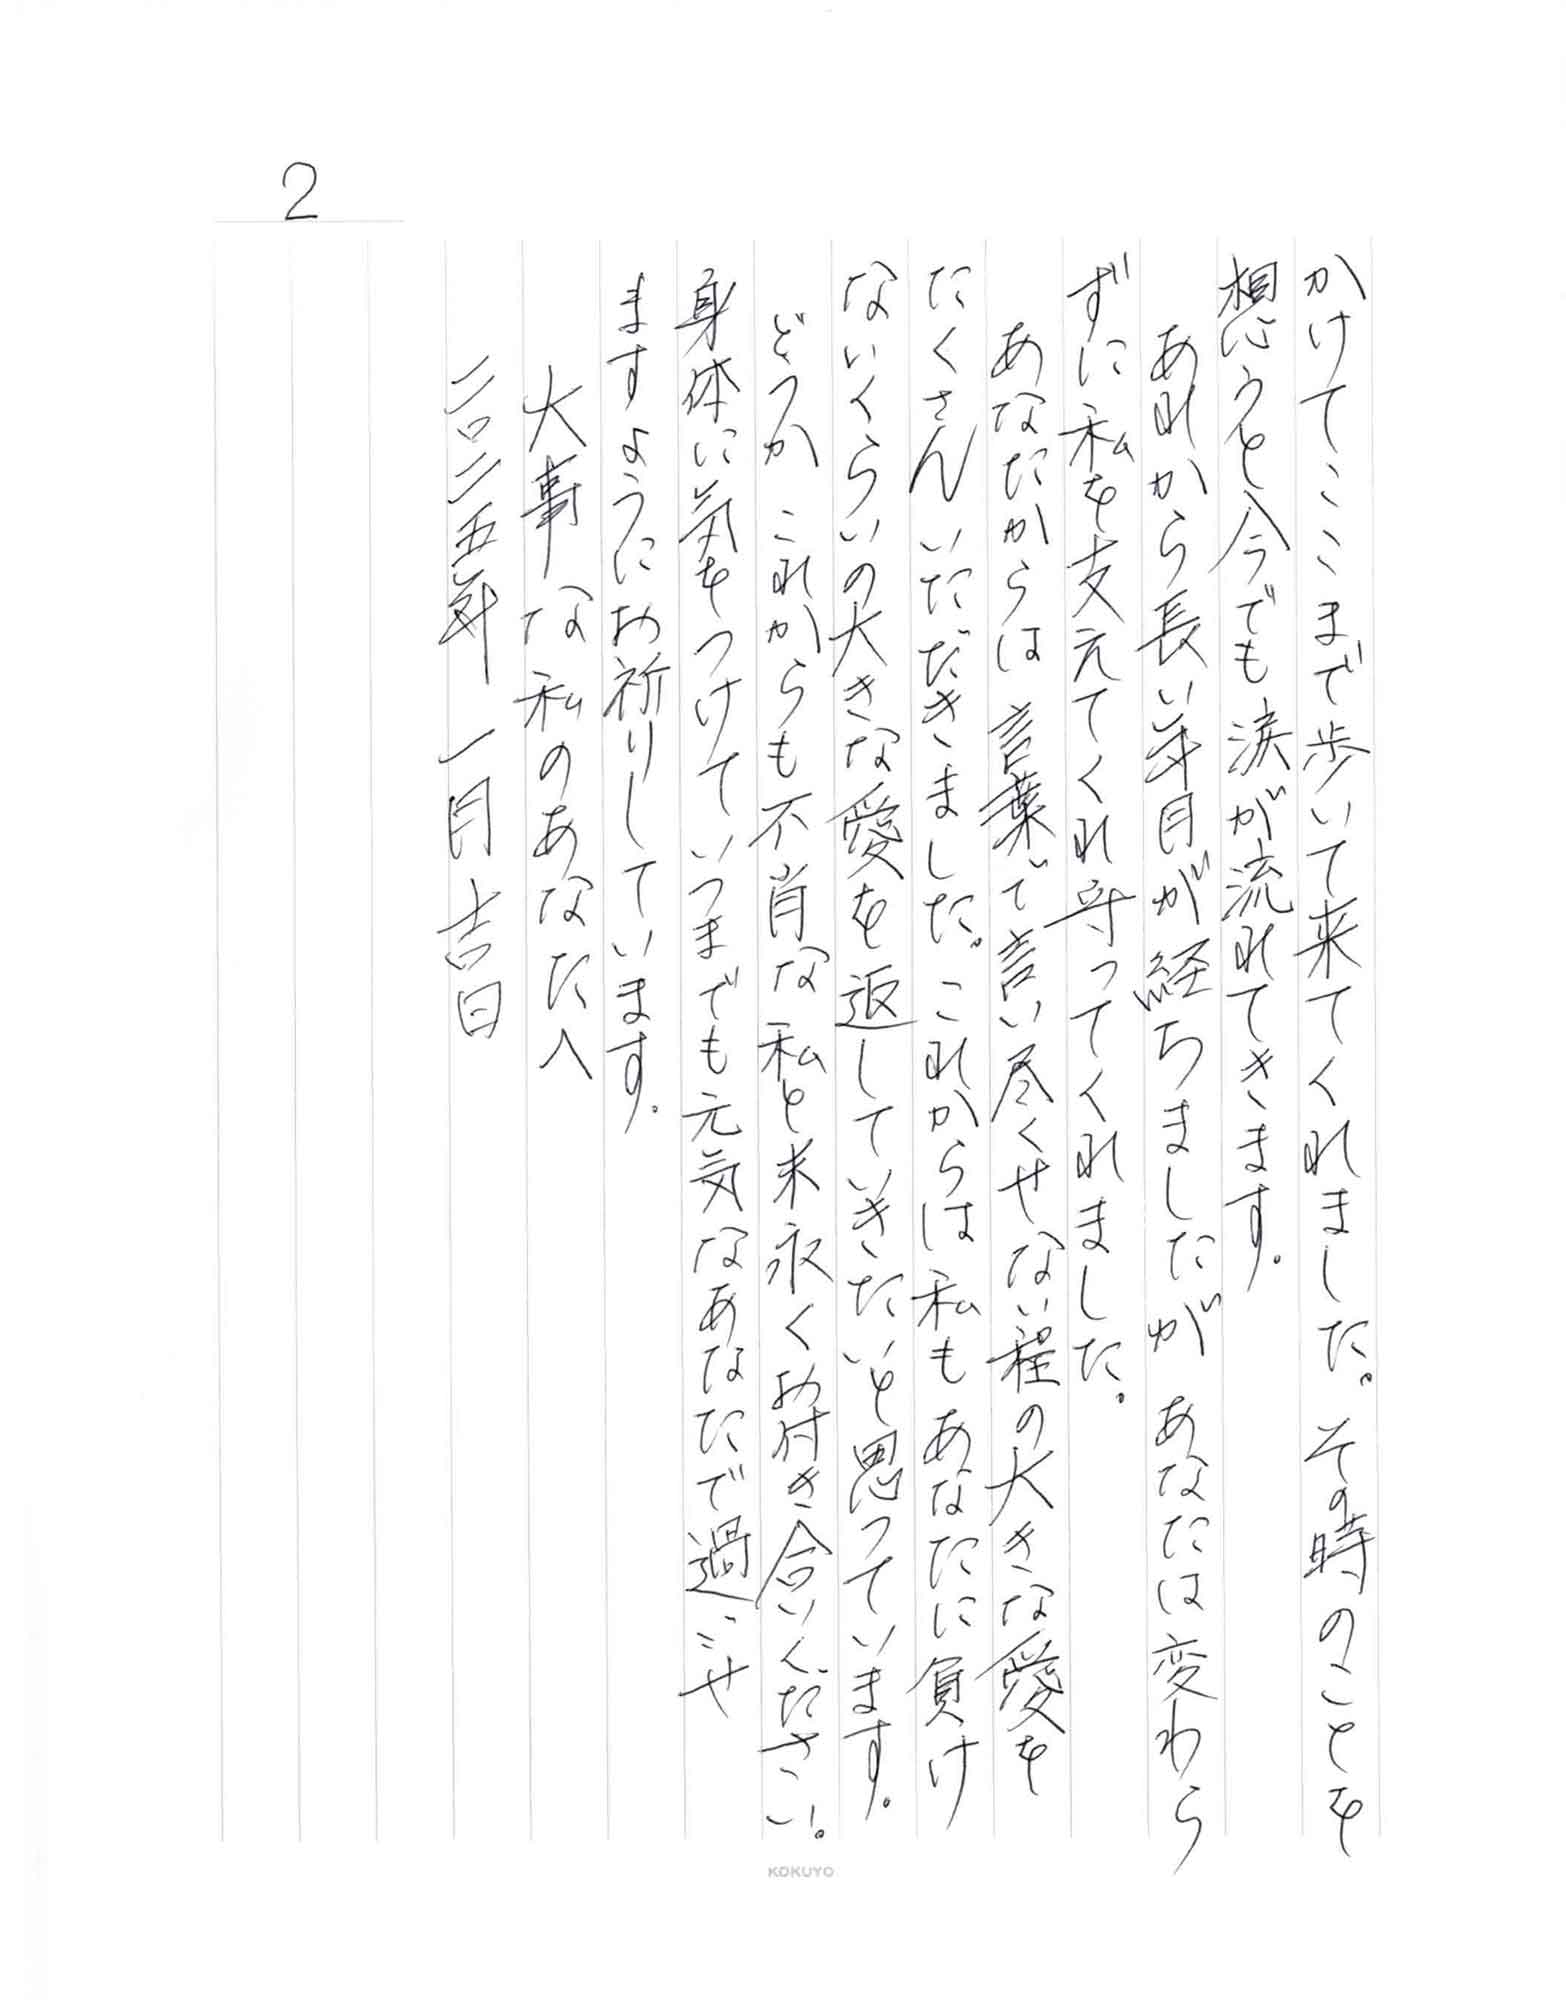 2
かけてここまで歩いて来てくれました。その時のことを
想うと今でも涙が流れてきます。
あれから長い年月が経ちましたが あなたは変わら
ずに私を支えてくれ守ってくれました。
あなたからは言葉で言い尽くせない程の大きな愛を
たくさんいただきました。これからは私もあなたに負け
ないくらいの大きな愛を返していきたいと思っています。
どうか これからも不肖な私と末永くお付き合いください。
身体に気をつけていつまでも元気なあなたで過ごせ
ますようにお祈りしています。
大事な私のあなたへ
二〇二五年 一月吉日
KOKUYO